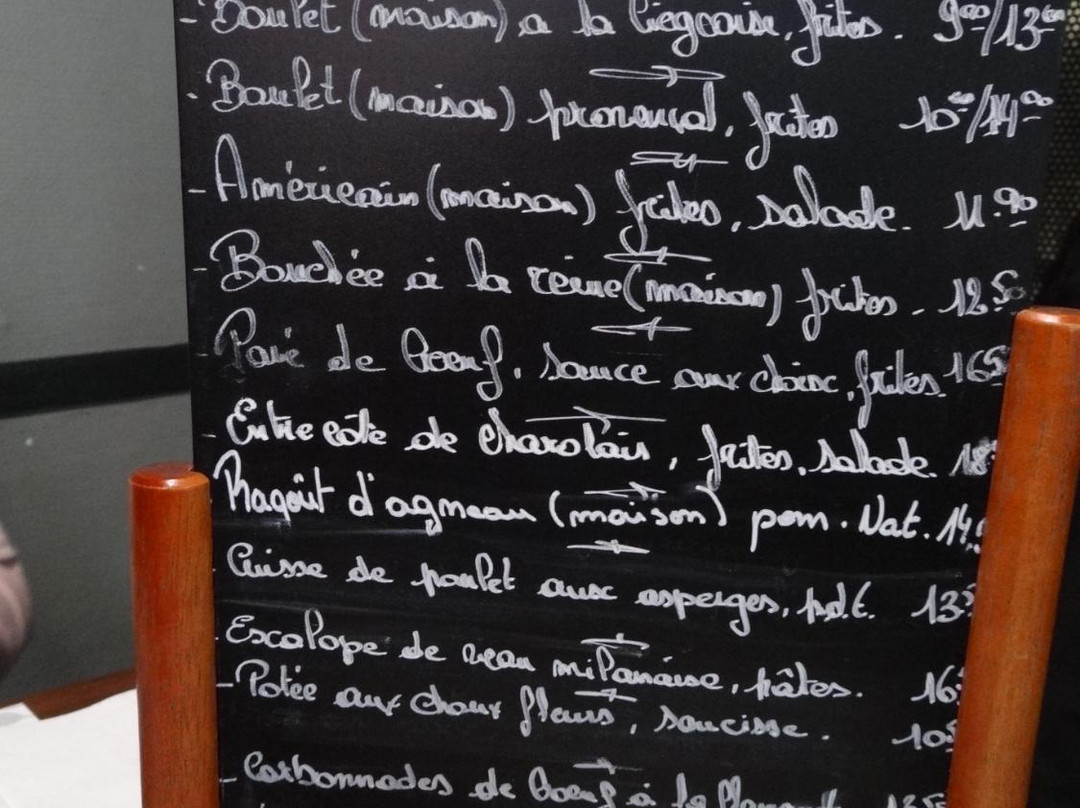 - Boulet (maison) a la liégeoise, frites. 9.00/13.00
- Boulet (maison) provençal, frites 10.00/14.00
- Américain (maison) frites, salade. 11.90
- Bouchée à la reine (maison) frites. 12.50
- Pavé de boeuf, sauce aux choix, frites. 16.5
- Entrecôte de charolais, frites, salade. 18
- Ragoût d'agneau (maison) pom. Nat. 14.
- Cuisse de poulet aux asperges, p.d.t. 13
- Escalope de veau milanaise, pâtes. 16
- Potée aux choux fleurs, saucisse. 10
- Carbonnades de boeuf à la